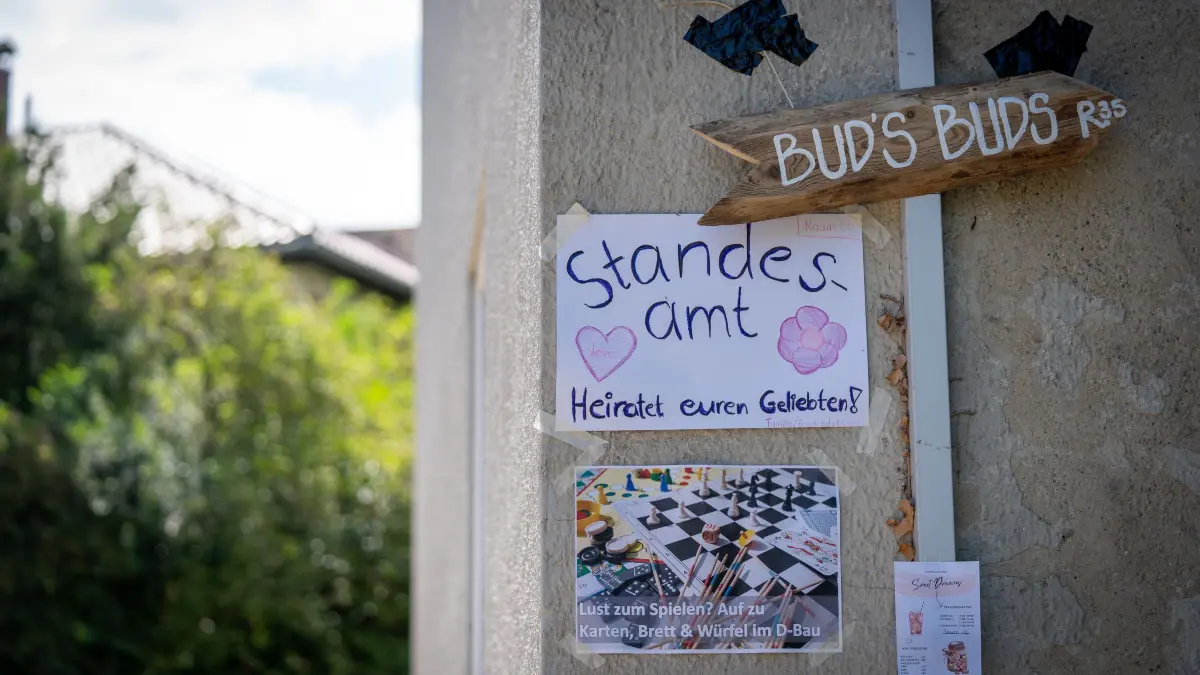 BUD'S BUDS R35
Standes-
amt
love
Heiratet euren Geliebten!
Lust zum Spielen? Auf zu
Karten, Brett & Würfel im D-Bau
Sweet Dreams